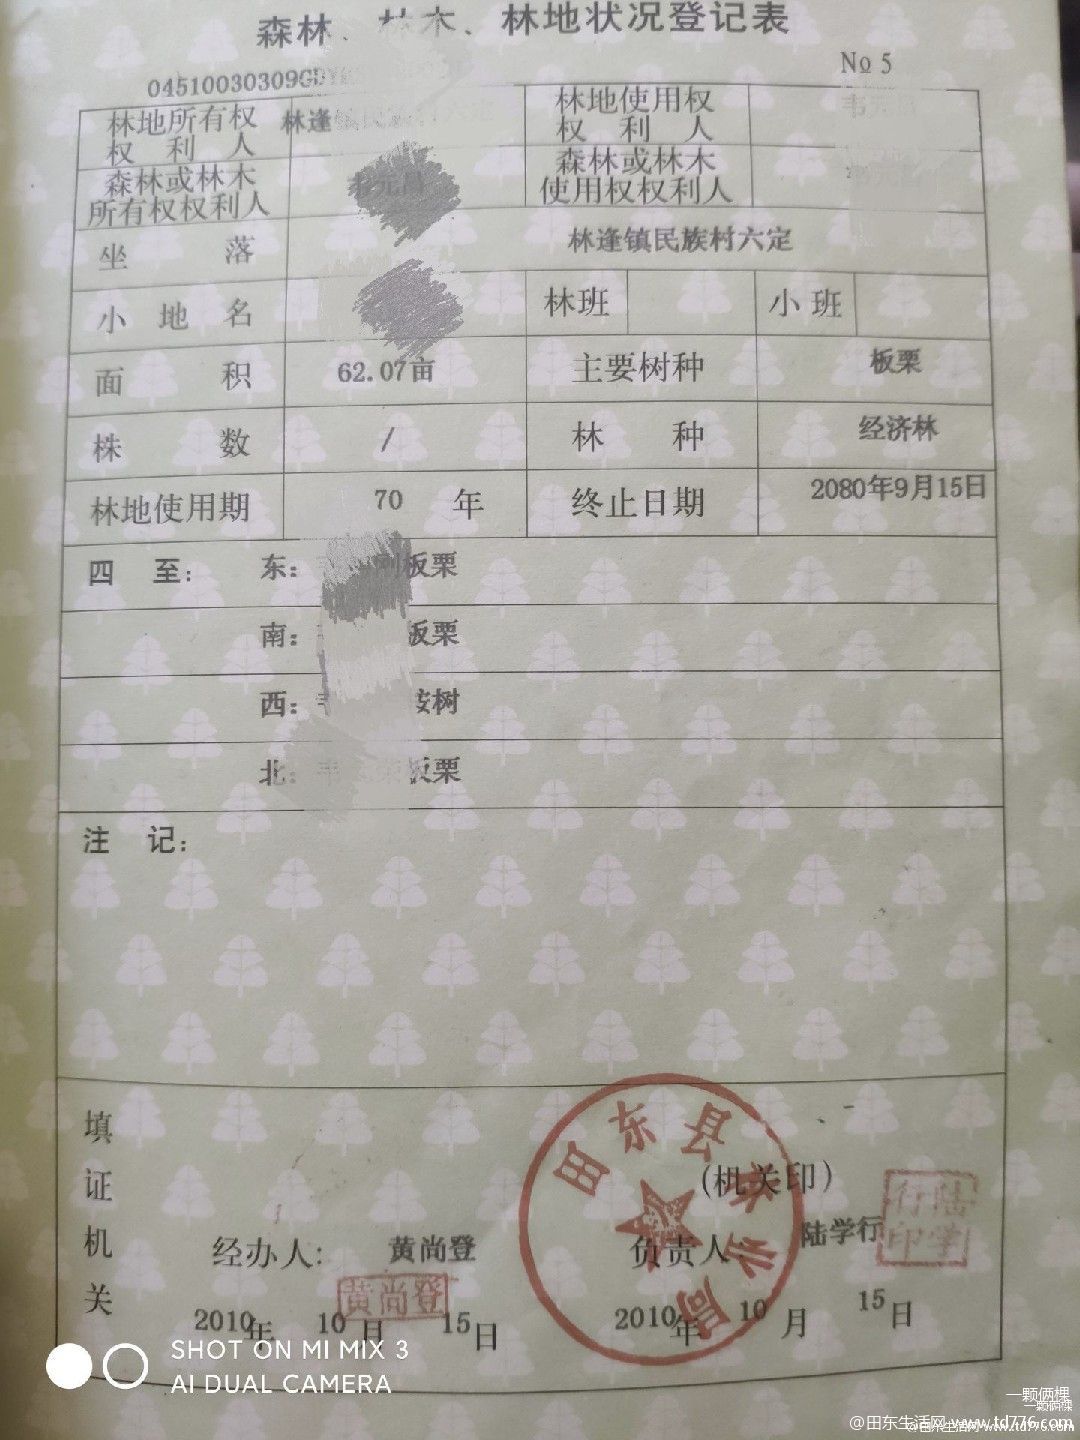 森林、林木、林地状况登记表
No 5
04510030309GDY
林地所有权权利人 林逢镇民族村六定 林地使用权权利人 韦元
森林或林木所有权权利人 元昌 森林或林木使用权权利人
坐落 林逢镇民族村六定
小地名 林班 小班
面积 62.07亩 主要树种 板栗
株数 / 林种 经济林
林地使用期 70 年 终止日期 2080年9月15日
四至: 东: 板栗
南: 板栗
西: 桉树
北: 韦 板栗
注记:
填证机关
田东县林业局
(机关印)
经办人: 黄尚登 负责人 陆学行
黄尚登
陆学行印
2010年 10月 15日 2010年 10月 15日
SHOT ON MI MIX 3
AI DUAL CAMERA
一颗俩棵
一颗俩棵
@田东生活网 www.td776.com
@田东生活网 www.td776.com